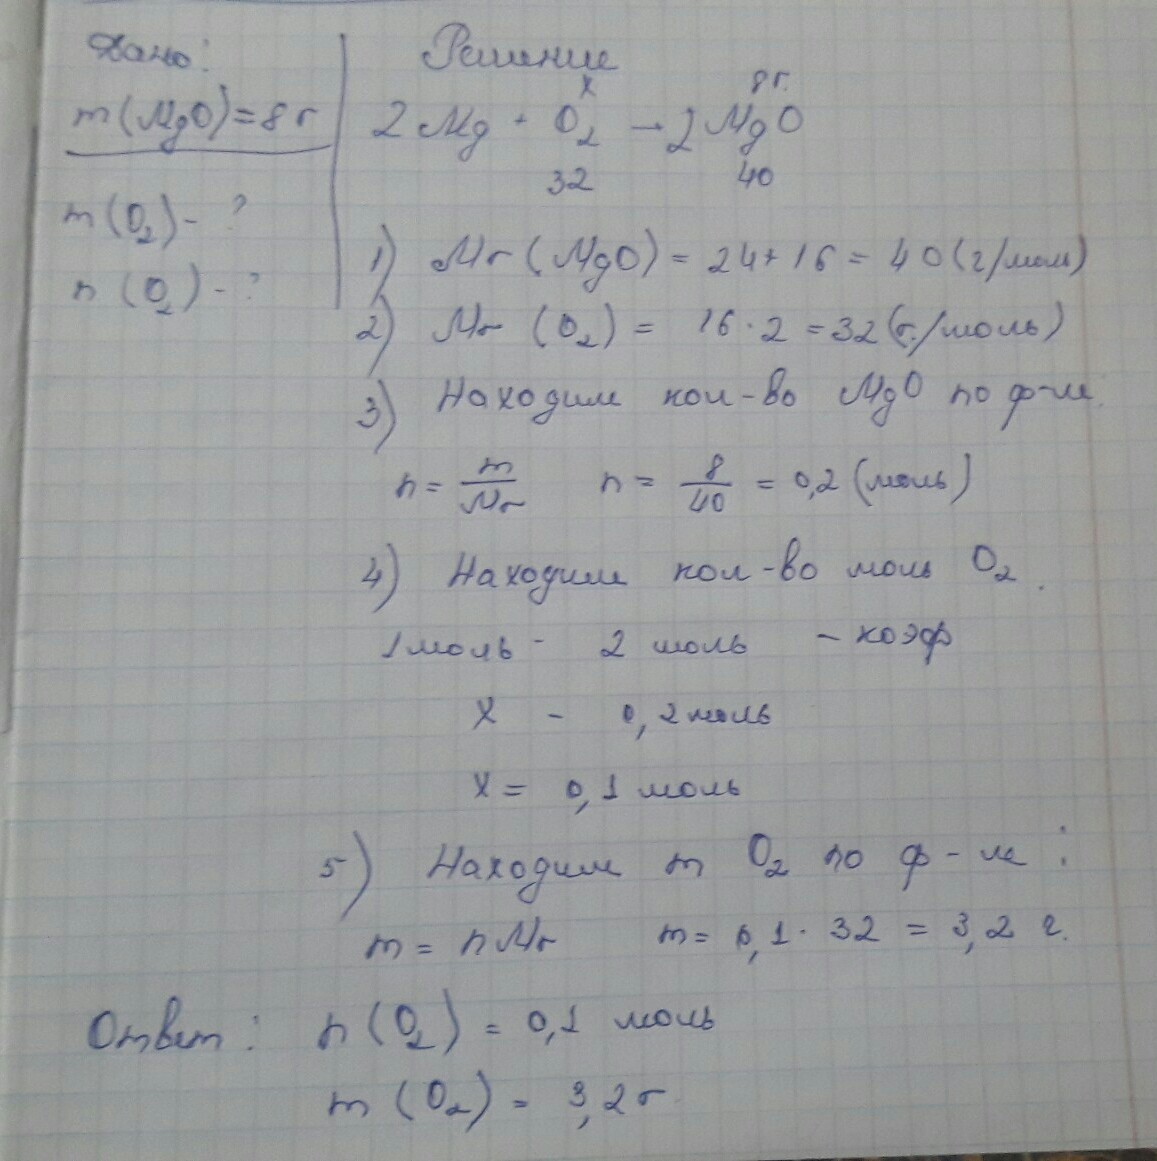 Дано:
m(MgO)=8 г
m(O₂) - ?
n(O₂) - ?
Решение
x 8 г.
2 Mg + O₂ → 2 MgO
32 40
1) Mr (MgO) = 24 + 16 = 40 (г/моль)
2) Mr (O₂) = 16 · 2 = 32 (г./моль)
3) Находим кол-во MgO по ф-ле:
n = m/Mr n = 8/40 = 0,2 (моль)
4) Находим кол-во моль O₂.
1 моль - 2 моль - коэф
x - 0,2 моль
x = 0,1 моль
5) Находим m O₂ по ф-ле:
m = nMr m = 0,1 · 32 = 3,2 г.
Ответ: n(O₂) = 0,1 моль
m (O₂) = 3,2 г